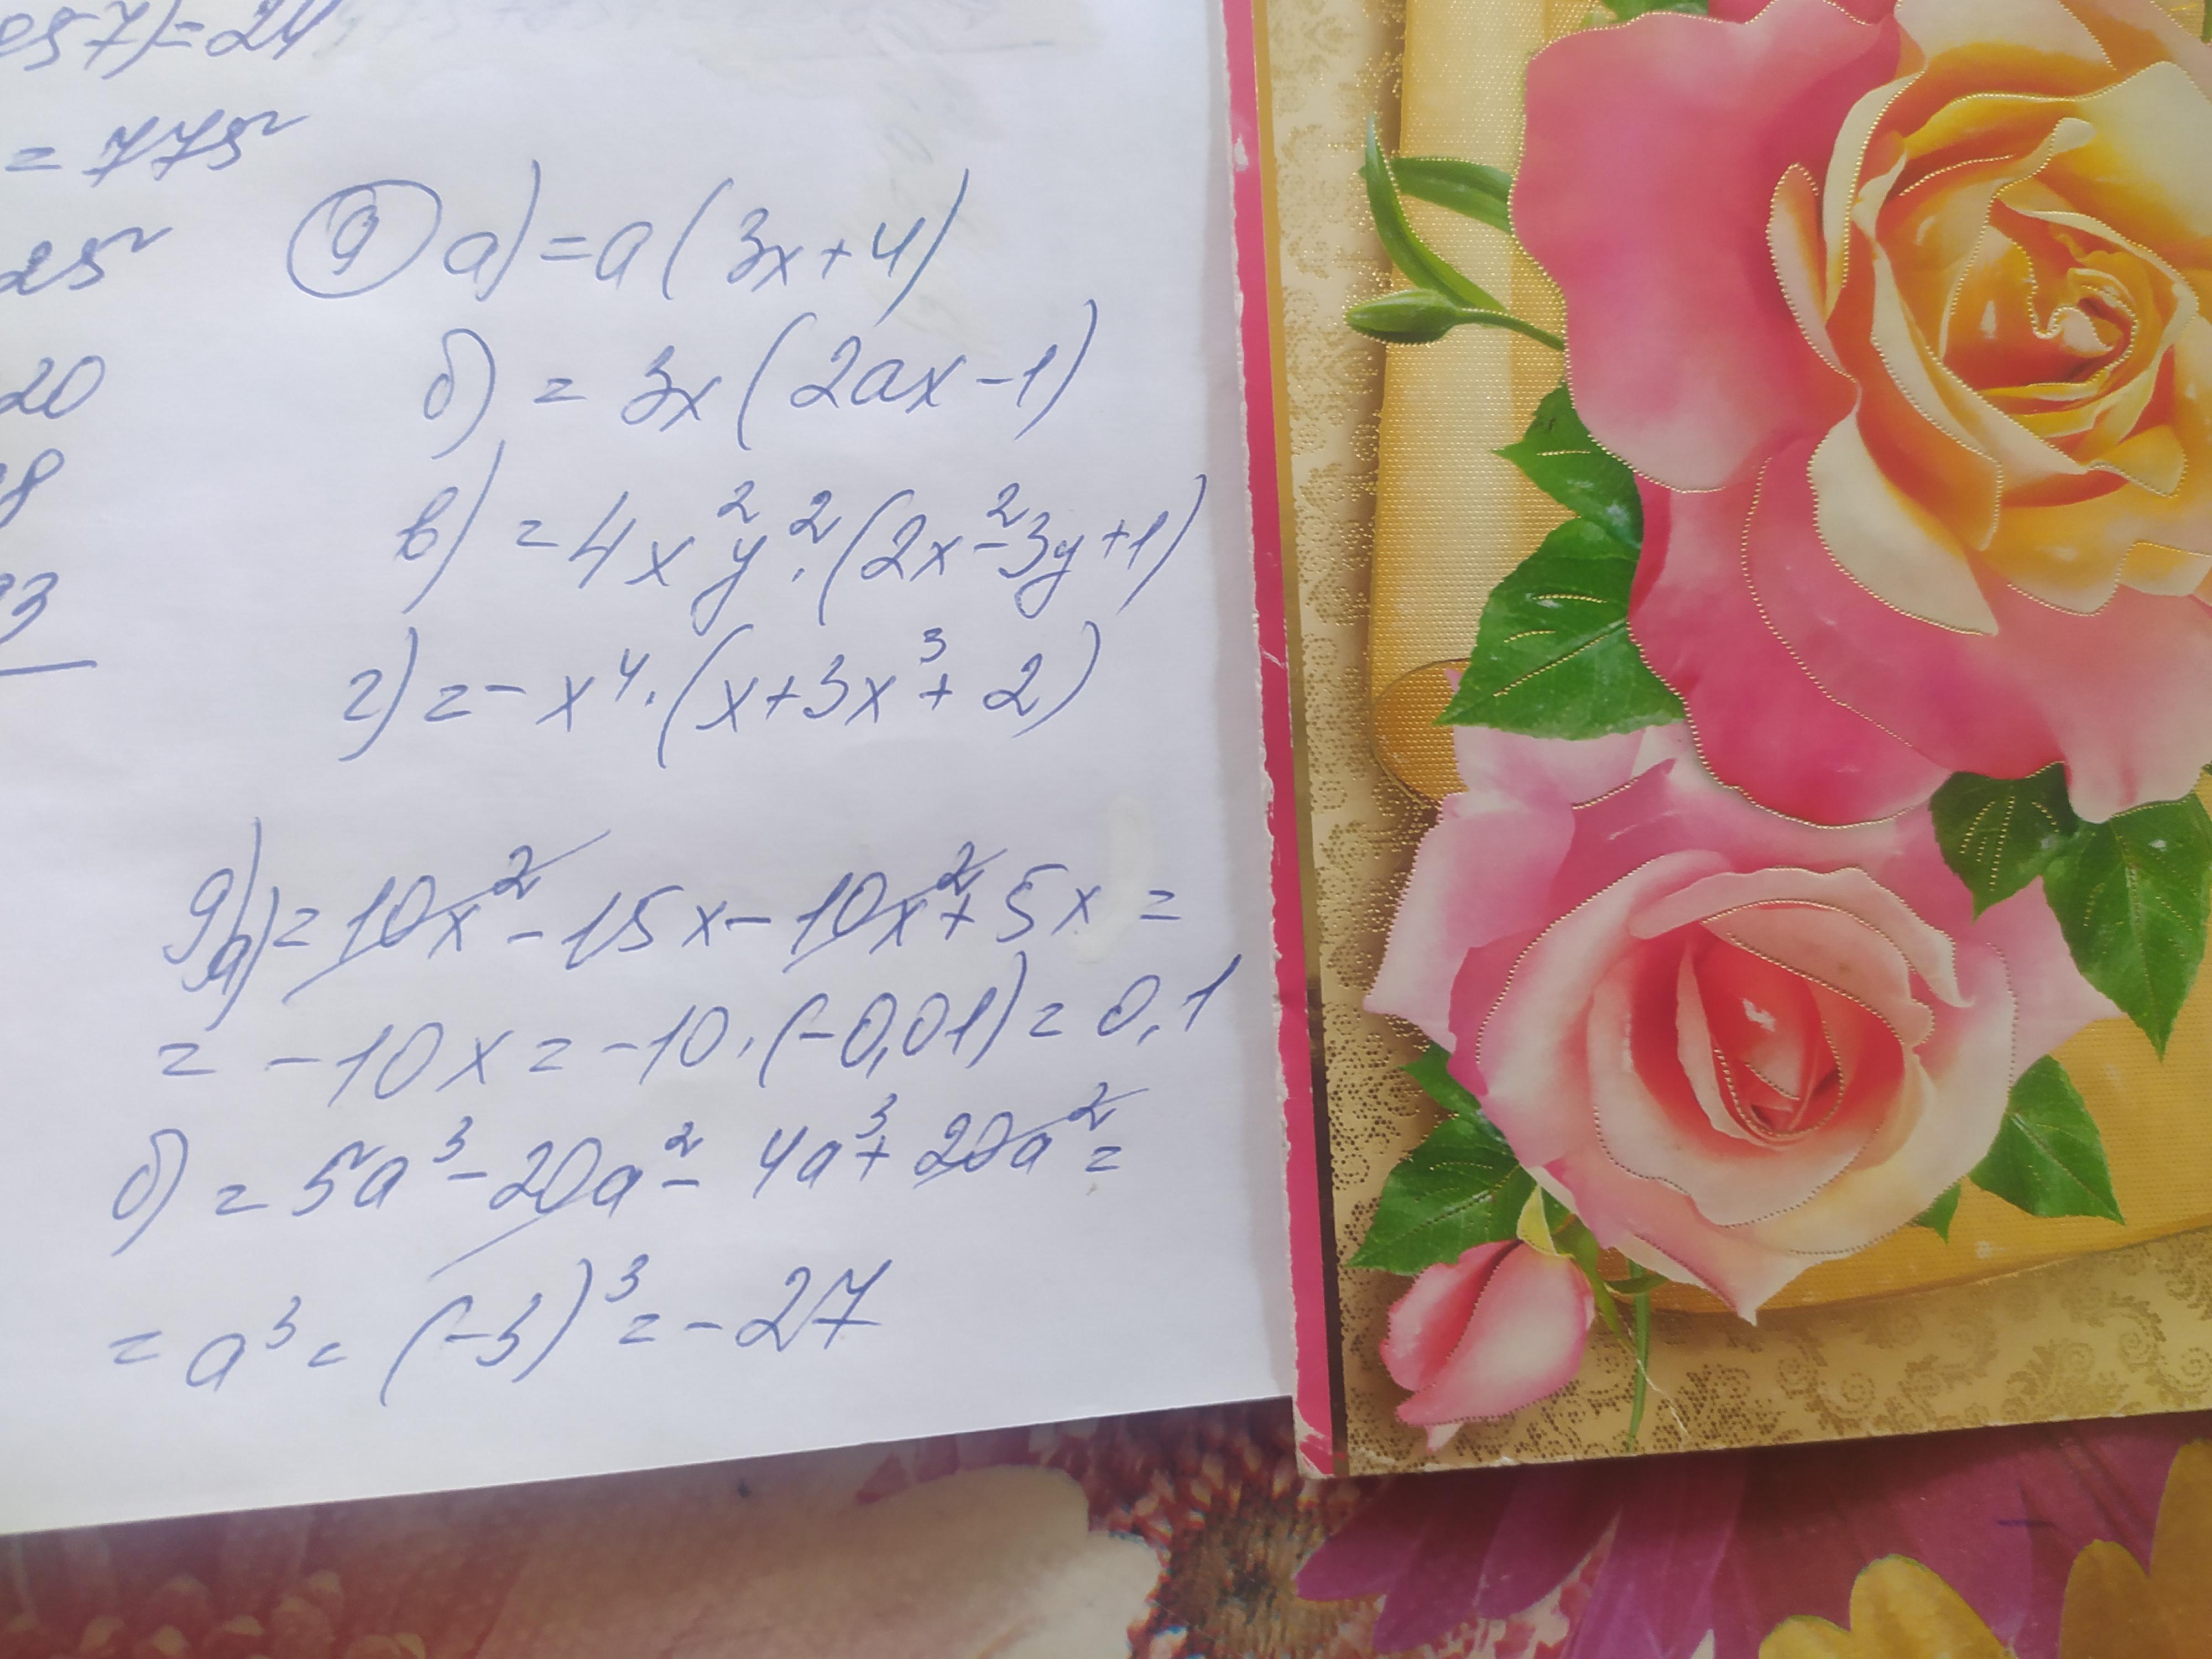 257)=24
= 775
25
20
8
3
9 а) = a(3x+4)
б) = 3x(2ax-1)
в) = 4x²y²·(2x²-3y+1)
г) = -x⁴·(x+3x³+2)
9) а) = 10x² - 15x - 10x² + 5x =
= -10x = -10·(-0,01) = 0,1
б) = 5a³ - 20a² - 4a³ + 20a² =
= a³ = (-3)³ = -27